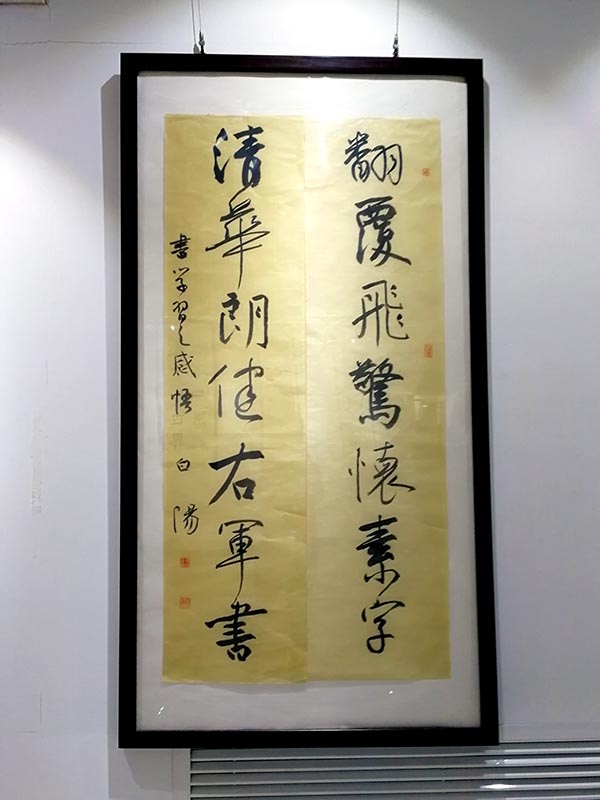 翻覆飛驚懷素字
清華朗健右軍書
書学習之感悟 白陽